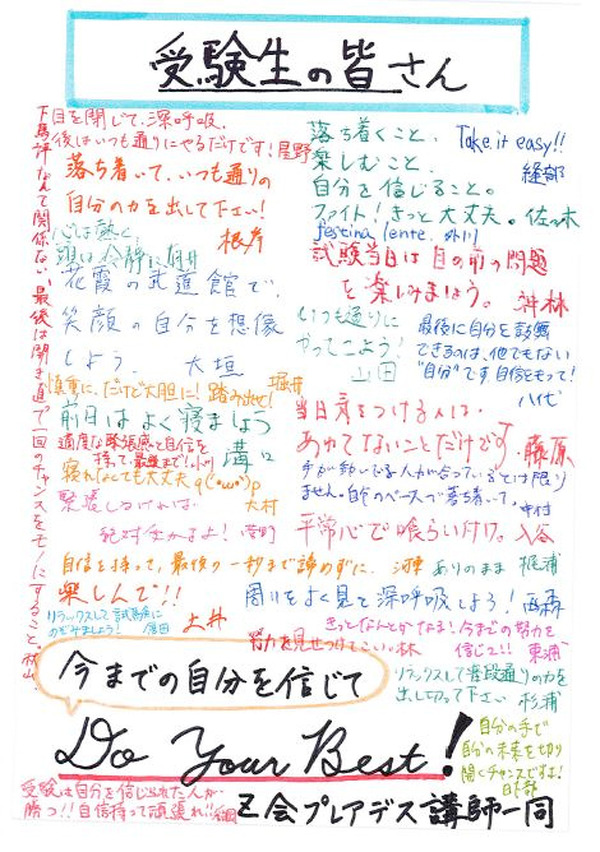 受験生の皆さん
目を閉じて、深呼吸、
後はいつも通りにやるだけです!星野
下馬評なんて関係ない、最後は開き直って一回のチャンスをモノにすること。秋山
落ち着いて、いつも通りの
自分の力を出して下さい!
根岸
心は熱く、
頭は冷静に 向井
花霞の武道館で、
笑顔の自分を想像
しよう。 大垣
慎重に、だけど大胆に!踏み出せ! 堀井
前日はよく寝ましょう
溝口
適度な緊張感と自信を
持って、最後まで!小川
寝れなくても大丈夫q(・ω・)p
大村
緊張しなければ
絶対受かるよ! 菅野
落ち着くこと、
楽しむこと、
自分を信じること。
ファイト!きっと大丈夫。佐々木
Take it easy!!
経部
festina lente. 外川
試験当日は目の前の問題
を楽しみましょう。神林
いつも通りに
やってこよう!
山田
最後に自分を鼓舞
できるのは、他でもない
"自分"です。自信をもって!
八代
当日気をつけるべきは、
あわてないことだけです。藤原
手が動いてる人が合っているとは限り
ません。自分のペースで落ち着いて。中村
平常心で喰らい付け。入谷
自信を持って、最後の一秒まで諦めずに。
ありのまま 梶浦
楽しんで!!
土井
周りをよく見て深呼吸しよう!西森
リラックスして試験に
のぞみましょう!
きっとなんとかなる!今までの努力を
信じて!! 東浦
努力を見せつけてこい。林
今までの自分を信じて
リラックスして普段通りの力を
出し切って下さい 杉浦
Do Your Best!
自分の手で
自分の未来を切り
開くチャンスですよ!
受験は自分を信じられた人が
勝つ!!自信持って頑張れ!!
Z会プレアデス講師一同